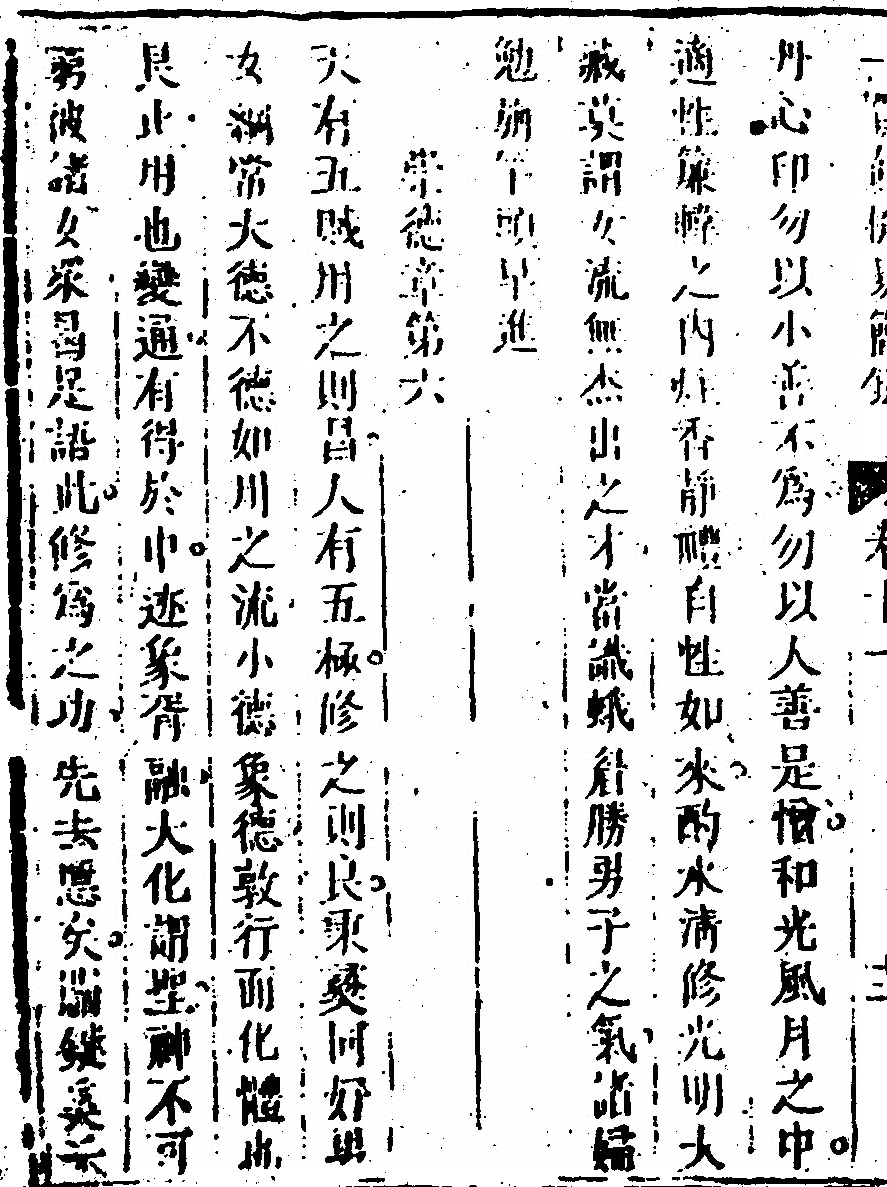 丹心印勿以小善不爲勿以人善是憎和光風月之中
適性簾幃之內炷香靜禮自性如來酌水清修光明大
藏莫謂女流無杰出之才當識蛾眉勝男子之氣諸婦
勉旃竿頭早進
崇德章第六
天有五賊用之則昌人有五極修之則良秉彝同好與
女綱常大德不德如川之流小德象德敦行而化體此
艮止用也變通有得於中迹象胥融大化謂聖神不可
窮彼諸女衆曷是語此修爲之功先去慝矣